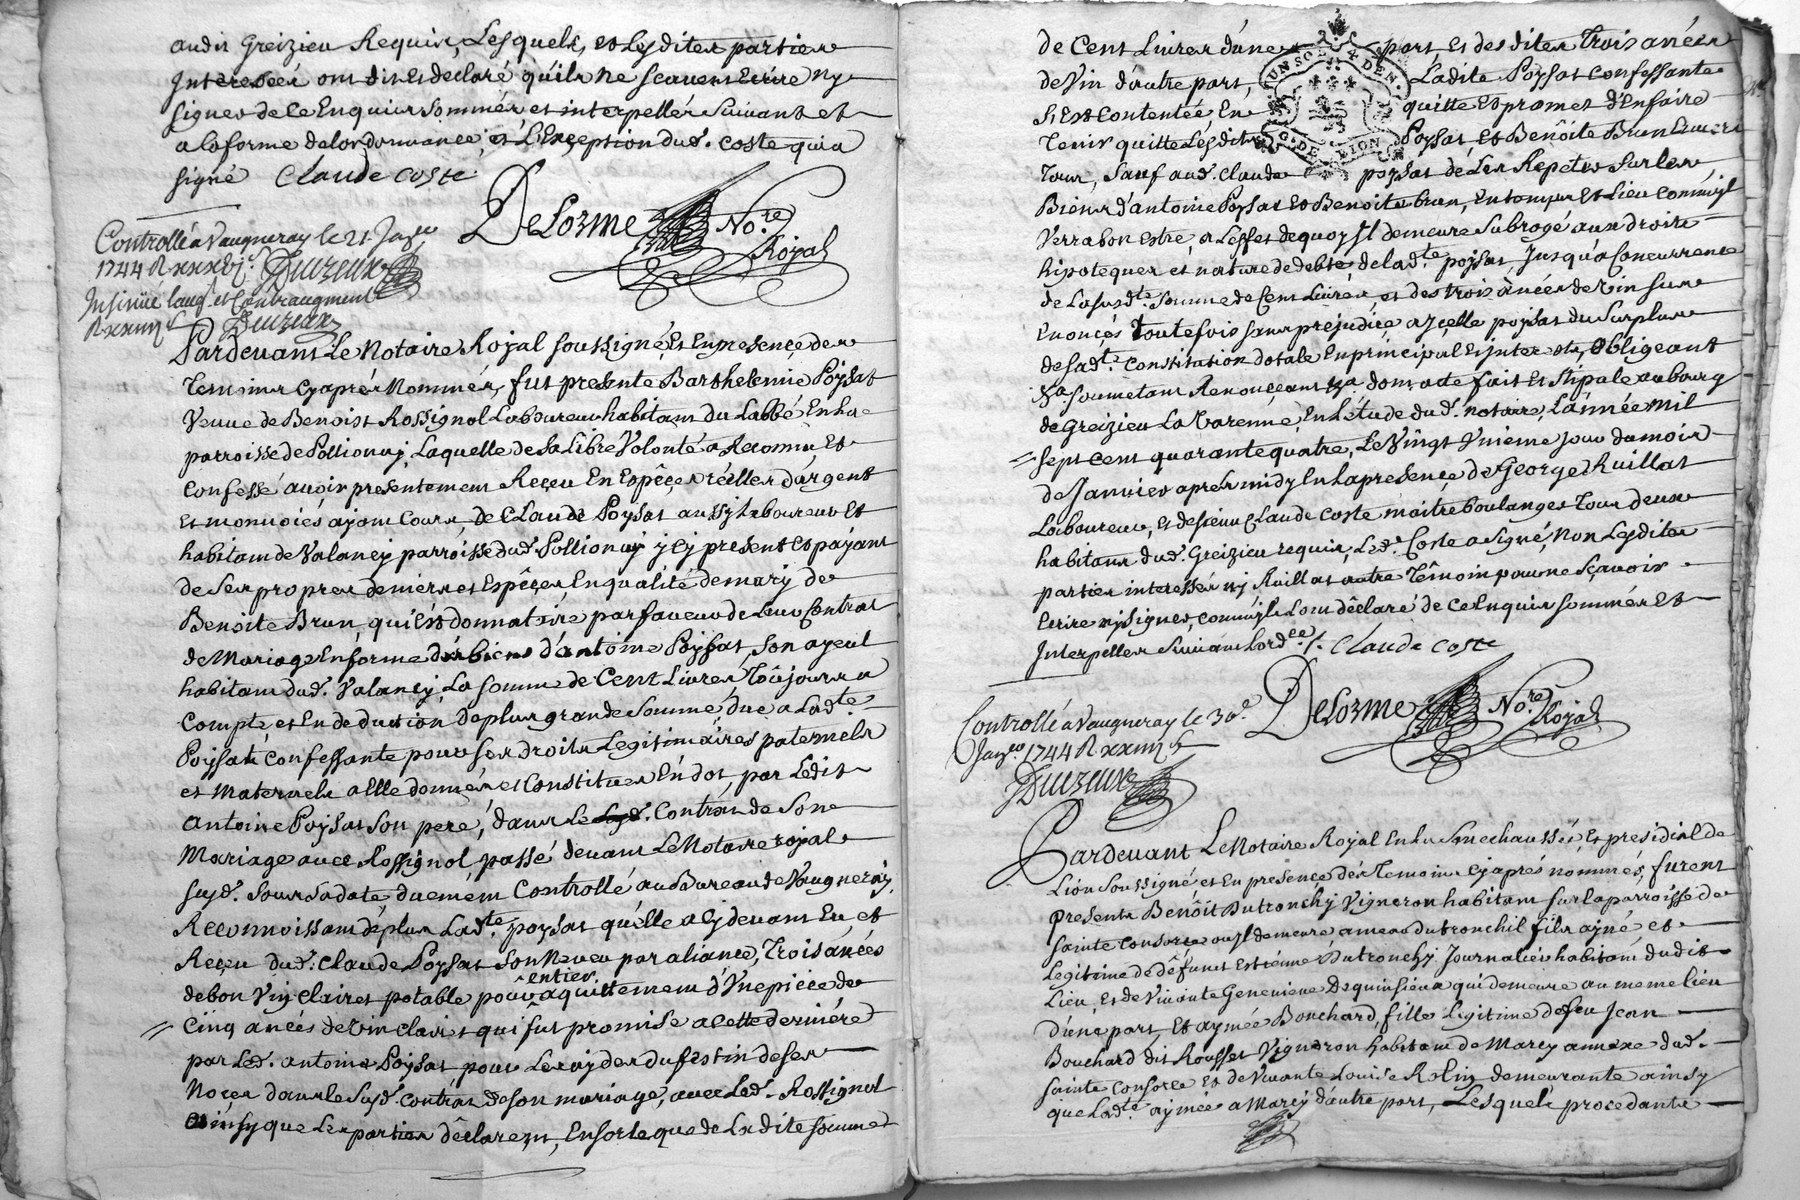 audit Greizieu Requis, Lesquels, et Lesdites parties
Interessées ont dit et declaré qu'ils ne scavent Ecrire ny
signer de ce Enquis sommés et interpellés suivant et
a la forme de lordonnance, et L'Exception dud. Coste qui a
signé Claude Coste
DeLorme No.re Royal
Controllé a Vaugneray le 21 Janv.
1744
Insinué
Pardevant Le Notaire Royal soussigné, Et En presence des
Temoins cy aprés Nommés, fut presente Barthelemie Poysat
Veuve de Benoist Rossignol Laboureur habitant du Labbé En la
parroisse de Pollionay, Laquelle de sa Libre Volonté a Reconnu Et
Confessé avoir presentement Reçeu En Espêces réélles d'argent
Et monnoiés ayant Cours, de Claude Poysat aussy Laboureur Et
habitant de Valancy parroisse dud. Pollionay y cy present et payant
de ses propres deniers et Espêçes En qualité de mary de
Benoite Brun, qui Est donnataire par faveur de Leur Contrat
de Mariage En forme des biens d'antoine Poysat, son ayeul
habitant dud. Valancy, La somme de Cent Livres Toûjours a
Compte, et En deduction de plus grande Somme düe a Lad.te
Poysat Confessante pour ses droits Legitimaires paternels
et maternels a Elle donnés et Constitués En dot, par Ledit
antoine Poysat son pere, dans Le Contrat de Son
Mariage avec Rossignol passé devant Le Notaire royal
susd. Sous sa date, duement Controllé au Bureau de Vaugneray,
Reconnoissant déplus Lad.te poysat qu'elle a cy devant Eu et
Reçeu dud. Claude Poysat son Neveu par aliance, Trois ânées
de bon Vin Clairet potable pour entier aquittement d'Une piéce de
Cinq anées de vin clairet qui fut promise a cette derniére
par Led. antoine Poysat, pour Le ayder du festin de ses
Noces dans le Susd. contrat de son mariage, avec Led. Rossignol
ainsy que Les parties dêclarent, En sorte que de Ladite somme
de Cent Livres d'une part et des dites Trois anées
de Vin d'autre part, Ladite Poysat Confessante
s'Est Contentée En quitte Et promet d'En faire
Tenir quitte Lesdits Poysat, et Benôite Brun Envers
Tous, Sauf aud. Claude poysat de Les Repeter sur les
Biens d'antoine Poysat Et Benoite brun, En temps et Lieu comm'yl
Verra bon estre, a L'effet de quoy Il demeure Subrogé aux droits
hipoteques et nature de debte de lad.te poysat, Jusqu'a Concurrence
de La susd.te Somme de Cent Livres et des trois ânées de vin sus
Enoncés toutefois sans prejudice a yçelle poysat du Surplus
de sad.te Constitution dotale En principal Et interets, Obligeant
Soumetant Renonçant Dont acte fait Et Stipulé au bourg
de Greizieu La Varenne, En L'étude dud. notaire, L'année mil
sept cent quarante quatre, Le Vingt Unieme jour du mois
de Janvier aprés midy En La presence de George Ruillat
Laboureur, et de sieur Claude Coste maitre boulanger Tous deux
habitans dud. Greizieu requis, Led. Coste a signé, Non Lesdites
parties interessées ny Ruillat autre Têmoin pour ne sçavoir
Ecrire ny signer, comm'yls L'ont dêclaré de ce Enquis sommés Et
Interpellés suivant Lord.ce /. Claude Coste
DeLorme No.re Royal
Controllé a Vaugneray le 30.e
Janv.er 1744
Pardevant Le Notaire Royal En La Senechaussée Et presidial de
Lion Soussigné et En presence dés Temoins Cy aprés nommés, furent
presents Benôit Dutronchy Vigneron habitant sur la parroisse de
Sainte Consorce ou yl demeure a meas du tronchil fils ayné et
Legitime de défunt Estienne Dutronchy Journalier habitant dudit
Lieu, et de Vivante Genevieve Dequinsieux qui demeure au meme lieu
d'une part, Et aymée Bouchard, fille Legitime de feu Jean
Bouchard dit Rousset Vigneron habitant de Marcy annexe dud.
Sainte Consorce et de Vivante Louise Rolin demeurante ainsy
que Lad.te aymée a Marcy d'autre part, Lesquels procedants